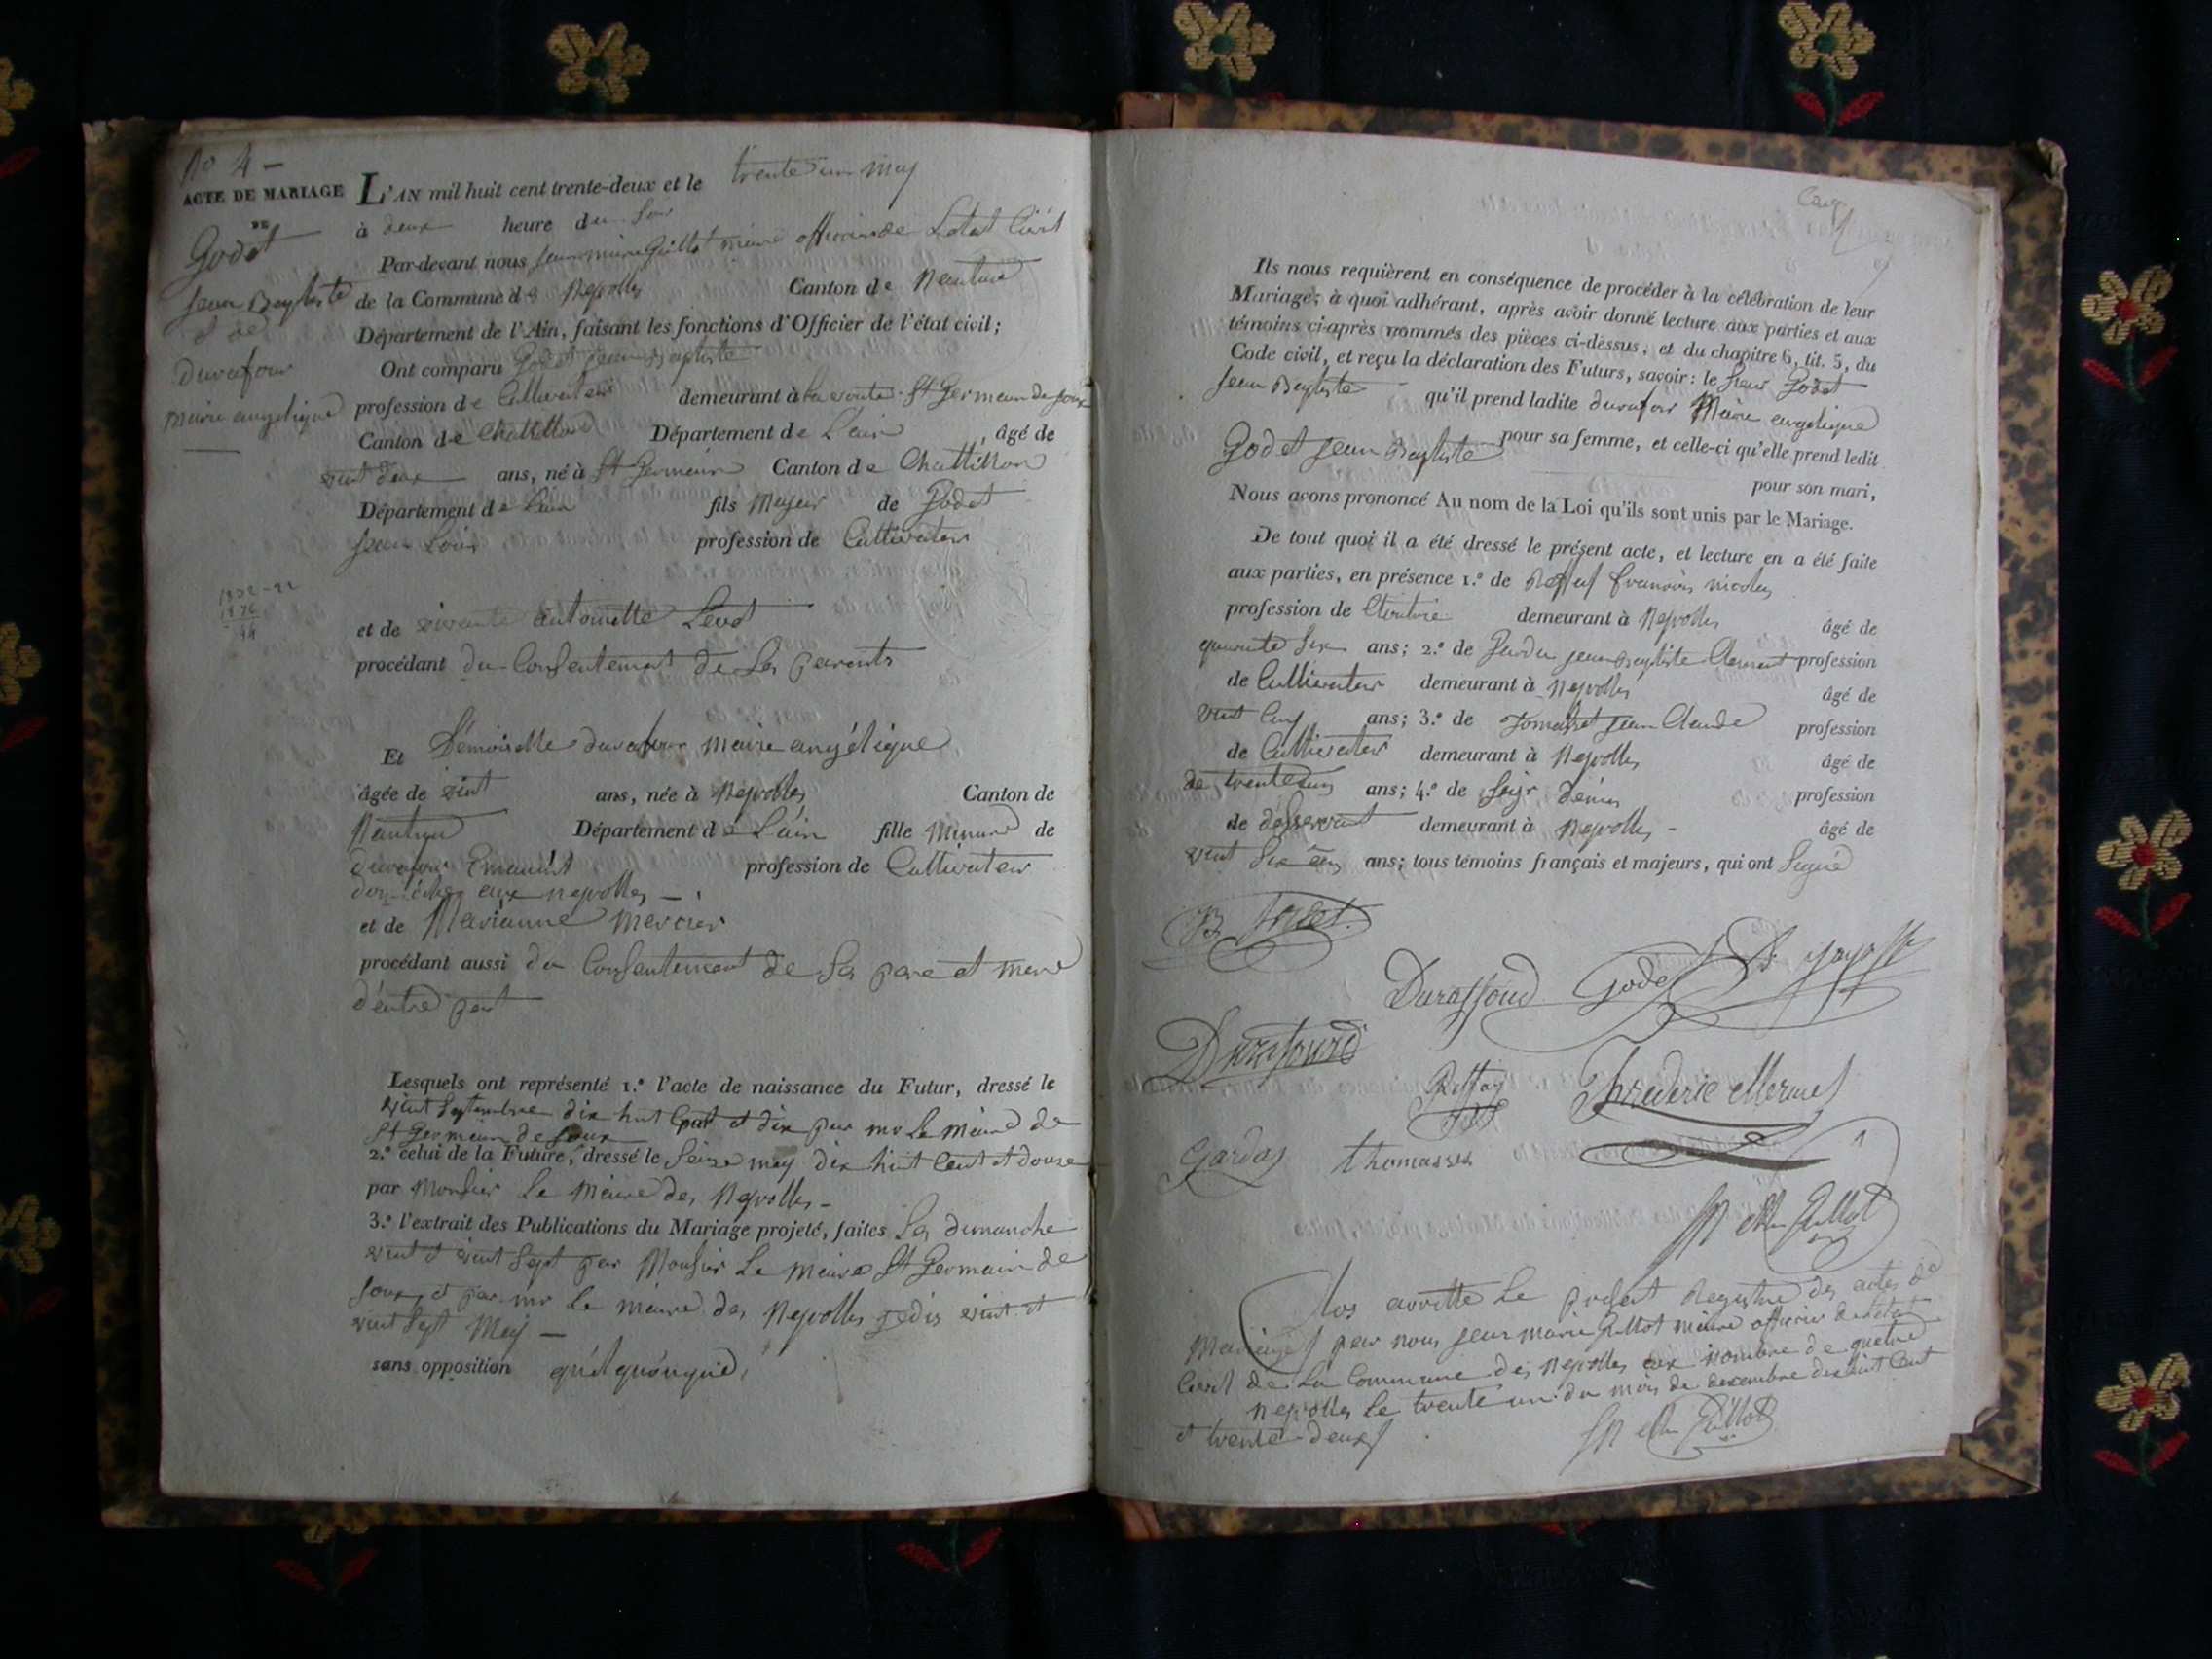 No 4 -
ACTE DE MARIAGE
DE
Godet
Jean Baptiste
et de
durafour
marie angelique
L'AN mil huit cent trente-deux et le trente un may
à deux heure du Soir
Par-devant nous jean marie Guillot maire officier de L'etat Civil
de la Commune des Neyrolles Canton de Nantua
Département de l'Ain, faisant les fonctions d'Officier de l'état civil;
Ont comparu Godet Jean Baptiste
profession de Cultivateur demeurant à St Germain de joux
Canton de Chatillon Département de L'ain, âgé de
vint deux ans, né à St Germain Canton de Chattillon
Département de L'ain fils Majeur de Godet
Jean Louis profession de Cultivateur
1832-22
et de vivante antoinette Levet
procédant du Consentement de Ses parents
Et Démoiselle durafour Marie angélique
âgée de vint ans, née à Neyrolles Canton de
Nantua Département de L'ain fille Mineure de
durafour profession de Cultivateur
aux neyrolles -
et de Marianne Mercier
procédant aussi du Consentement de Ses pere et mere
d'autre part
Lesquels ont représenté 1.º l'acte de naissance du Futur, dressé le
vint Septembre dix huit Cent et dix par mr Le maire de
St Germain de joux
2.º celui de la Future, dressé le Seize may dix huit Cent et douse
par Monsieur Le Maire des Neyrolles -
3.º l'extrait des Publications du Mariage projeté, faites Les dimanche
vint et vint Sept par Monsieur Le Maire St Germain de
Joux, et par mr Le maire des Neyrolles vint et
vint Sept May -
sans opposition
Ils nous requièrent en conséquence de procéder à la célébration de leur
Mariage; à quoi adhérant, après avoir donné lecture aux parties et aux
témoins ci-après nommés des pièces ci-dessus, et du chapitre 6, tit. 5, du
Code civil, et reçu la déclaration des Futurs, savoir: le Sieur Godet
Jean Baptiste qu'il prend ladite durafour Marie angelique
pour sa femme, et celle-ci qu'elle prend ledit
Godet Jean Baptiste pour son mari,
Nous avons prononcé Au nom de la Loi qu'ils sont unis par le Mariage.
De tout quoi il a été dressé le présent acte, et lecture en a été faite
aux parties, en présence 1.º de francois nicolas
profession de demeurant à Neyrolles âgé de
quarante Six ans; 2.º de jean Baptiste Clement profession
de Cultivateur demeurant à Neyrolles âgé de
vint Cinq ans; 3.º de jean Claude profession
de Cultivateur demeurant à Neyrolles âgé de
de ans; 4.º de denis profession
de désservant demeurant à Neyrolles - âgé de
vint Six ans; tous témoins français et majeurs, qui ont Signé
Godet
Duraffourd Godet
Duraffourd
Gardas thomasset
JN Me Guillot
Clos arretté Le present Registre des actes de
Mariages par nous jean marie Guillot maire officier de L'etat
Civil de La Commune des Neyrolles aux nombre de quatre
Neyrolles Le trente un du mois de decembre dix huit Cent
et trente deux
JN Me Guillot